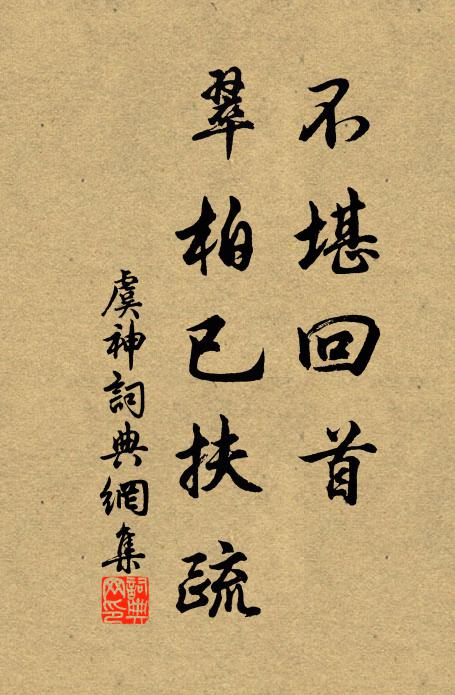 不堪回首
翠柏已扶疏
虞神詞典網集
詞典
网印